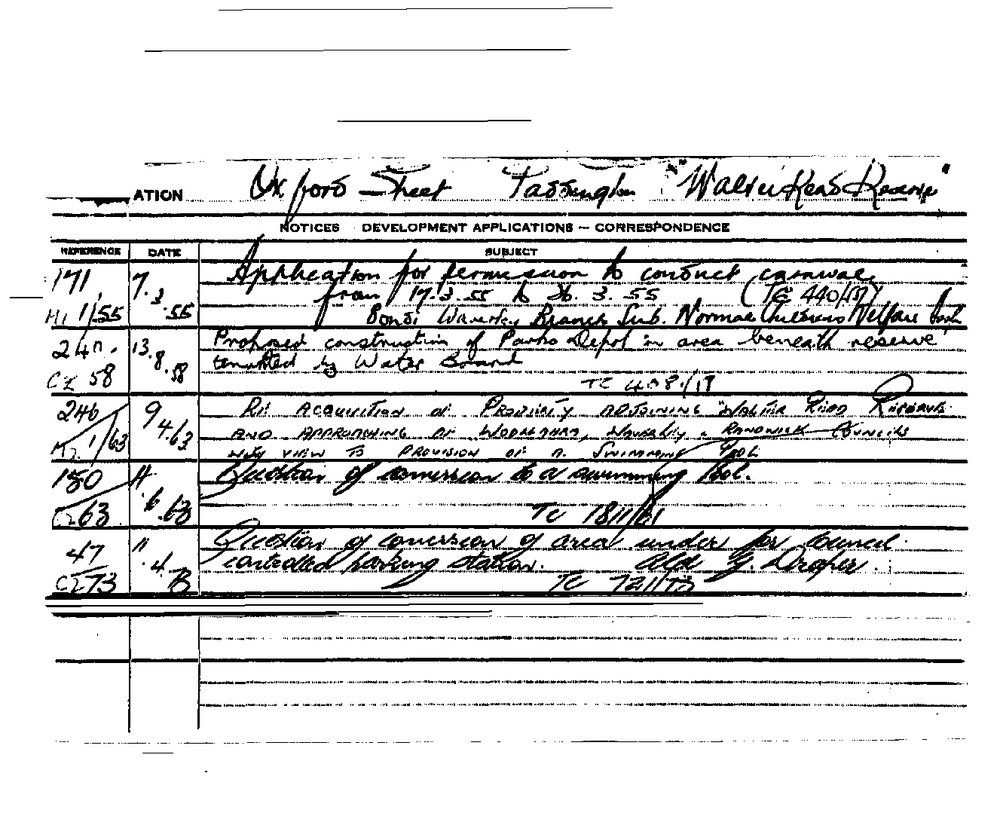 ATION Oxford Street Paddington "Walter Read Reserve"
NOTICES DEVELOPMENT APPLICATIONS — CORRESPONDENCE
REFERENCE DATE SUBJECT
171 7. Application for permission to conduct carnival
3. from 17.3.55 to 26.3.55 (TC 440/
1/55 .55 Bondi Waverley Branch Sub. Normal Childrens Welfare
240. 13. Proposed construction of Parks Depot in area beneath reserve
8. tenanted by Water Board
58 .58 TC 408/17
246 9 Re Acquisition of Property adjoining Walter Read Reserve
4. and approaching of Woollahra, Waverley & Randwick Councils
1/63 63 with view to provision of a Swimming Pool
180 Question of conversion to a swimming Pool.
6
63 .63 TC 1811/61
47 11 Question of conversion of area under for Council
.4. controlled parking station. Ald G. Draper.
73 73 TC 721/73